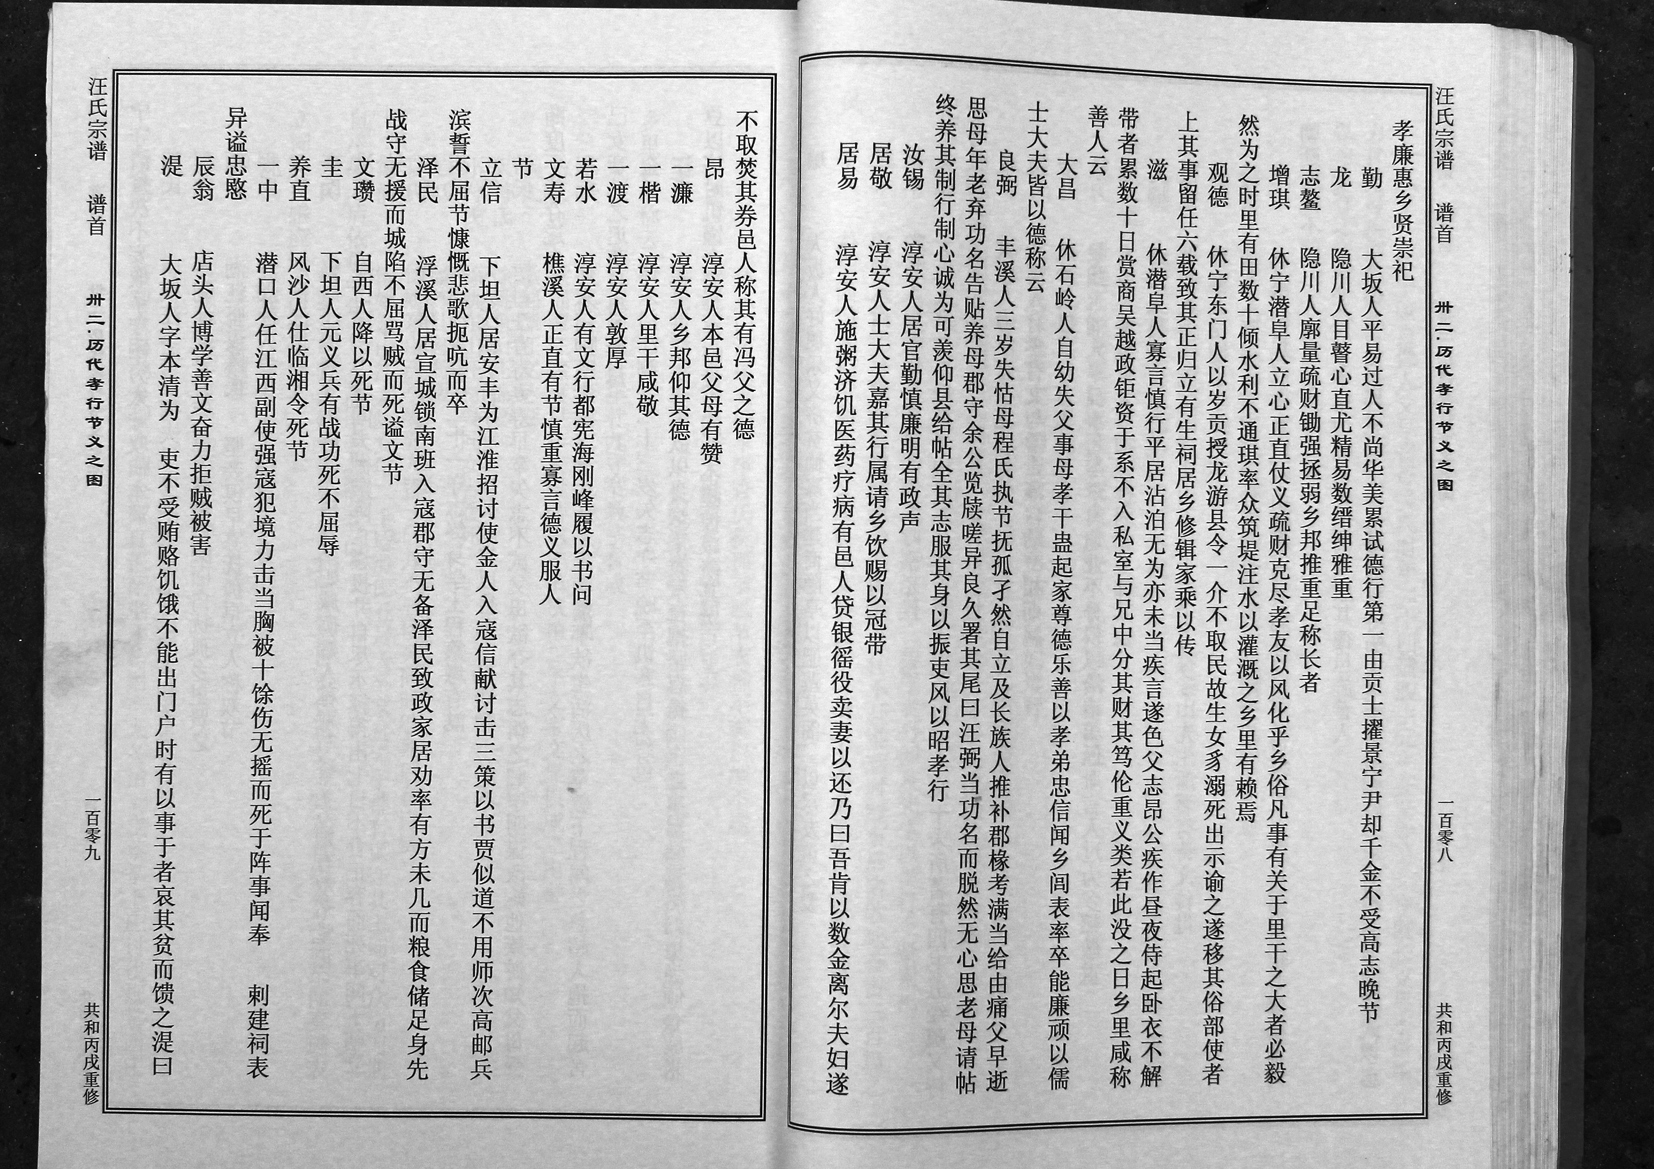 汪氏宗谱 谱首 卅二·历代孝行节义之图 一百零八 共和丙戌重修
孝廉惠乡贤崇祀
勤 大坂人平易过人不尚华美累试德行第一由贡士擢景宁尹却千金不受高志晚节
龙 隐川人目瞽心直尤精易数缙绅雅重
志鳌 隐川人廓量疏财锄强拯弱乡邦推重足称长者
增琪 休宁潜阜人立心正直仗义疏财克尽孝友以风化乎乡俗凡事有关于里干之大者必毅
然为之时里有田数十倾水利不通琪率众筑堤注水以灌溉之乡里有赖焉
观德 休宁东门人以岁贡授龙游县令一介不取民故生女豸溺死出示谕之遂移其俗部使者
上其事留任六载致其正归立有生祠居乡修辑家乘以传
滋 休潜阜人寡言慎行平居沾泊无为亦未当疾言遂色父志昂公疾作昼夜侍起卧衣不解
带者累数十日赏商吴越政钜资于系不入私室与兄中分其财其笃伦重义类若此没之日乡里咸称
善人云
大昌 休石岭人自幼失父事母孝干蛊起家尊德乐善以孝弟忠信闻乡闾表率卒能廉顽以儒
士大夫皆以德称云
良弼 丰溪人三岁失怙母程氏执节抚孤孑然自立及长族人推补郡椽考满当给由痛父早逝
思母年老弃功名告贴养母郡守余公览牍嗟异良久署其尾曰汪弼当功名而脱然无心思老母请帖
终养其制行制心诚为可羡仰县给帖全其志服其身以振吏风以昭孝行
汝锡 淳安人居官勤慎廉明有政声
居敬 淳安人士大夫嘉其行属请乡饮赐以冠带
居易 淳安人施粥济饥医药疗病有邑人贷银徭役卖妻以还乃曰吾肯以数金离尔夫妇遂
不取焚其券邑人称其有冯父之德
昂 淳安人本邑父母有赞
一濂 淳安人乡邦仰其德
一楷 淳安人里干咸敬
一渡 淳安人敦厚
若水 淳安人有文行都宪海刚峰履以书问
文寿 樵溪人正直有节慎重寡言德义服人
节
立信 下坦人居安丰为江淮招讨使金人入寇信献讨击三策以书贾似道不用师次高邮兵
滨誓不屈节慷慨悲歌扼吭而卒
泽民 浮溪人居宣城锁南班入寇郡守无备泽民致政家居劝率有方未几而粮食储足身先
战守无援而城陷不屈骂贼而死谥文节
文瓒 自西人降以死节
圭 下坦人元义兵有战功死不屈辱
养直 风沙人仕临湘令死节
一中 潜口人任江西副使强寇犯境力击当胸被十馀伤无摇而死于阵事闻奉 剌建祠表
异谥忠愍
辰翁 店头人博学善文奋力拒贼被害
湜 大坂人字本清为 吏不受贿赂饥饿不能出门户时有以事于者哀其贫而馈之湜曰
汪氏宗谱 谱首 卅二·历代孝行节义之图 一百零九 共和丙戌重修